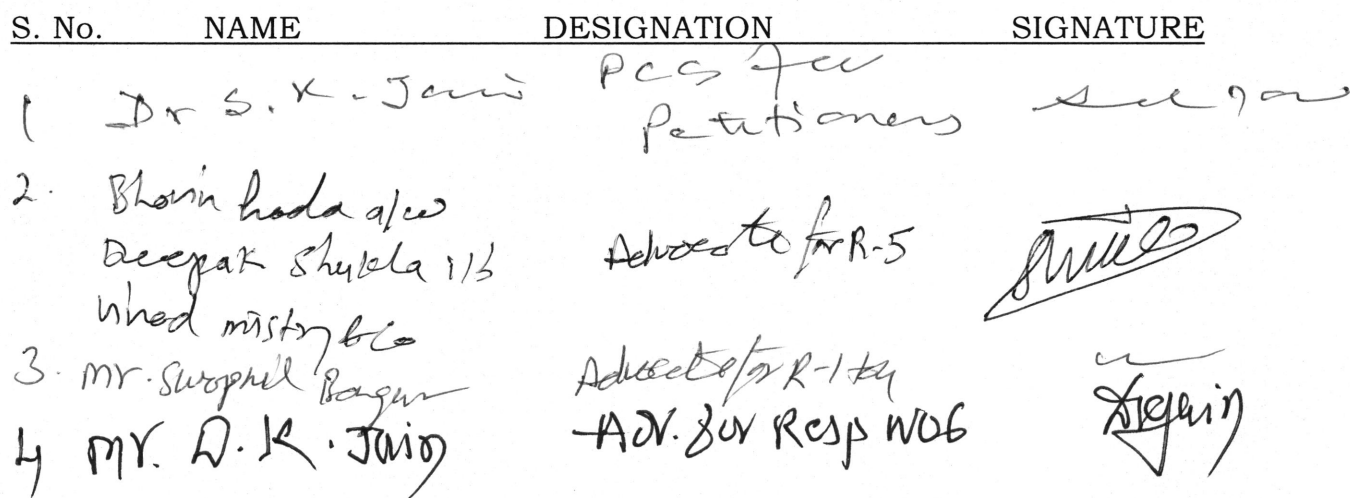 S. No. NAME DESIGNATION SIGNATURE
1 Dr S. K. Jain PCS for Petitioners
2. Bhavin hada a/w
Deepak Shukla i/b Advocate for R-5
Vinod mistry & Co
3. Mr. Swapnil Bangur Advocate for R-1 to 4
4 Mr. D. K. Jain Adv. for Resp No 6